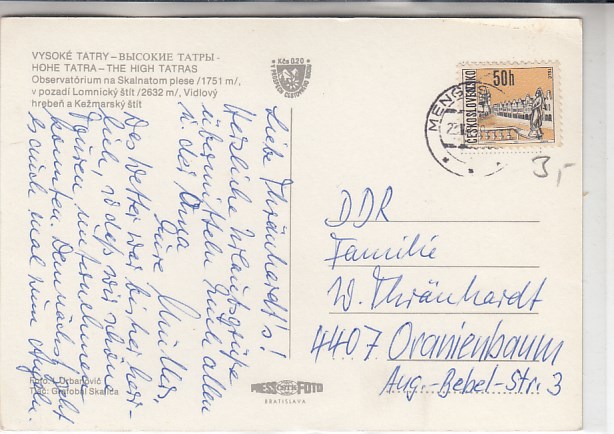 VYSOKÉ TATRY – ВЫСОКИЕ ТАТРЫ -
HOHE TATRA – THE HIGH TATRAS
Observatórium na Skalnatom plese /1751 m/,
v pozadí Lomnický štít /2632 m/, Vidlový
hrebeň a Kežmarský štít
Kčs 0,20
50h
ČESKOSLOVENSKO
MENG
3,-
Liebe Thränhardt's!
Herzliche Urlaubsgrüße
übermitteln Euch allen
u. der Oma
Eure Müllers.
Das Wetter war bisher herr-
lich, so daß wir schöne
Touren unternehmen
konnten. Demnächst geht
es auch mal zum
DDR
Familie
W. Thränhardt
4407 Oranienbaum
Aug.-Bebel-Str. 3
Foto: Urbanovič
Tlač: Grafobal Skalica
PRESSFOTO
BRATISLAVA